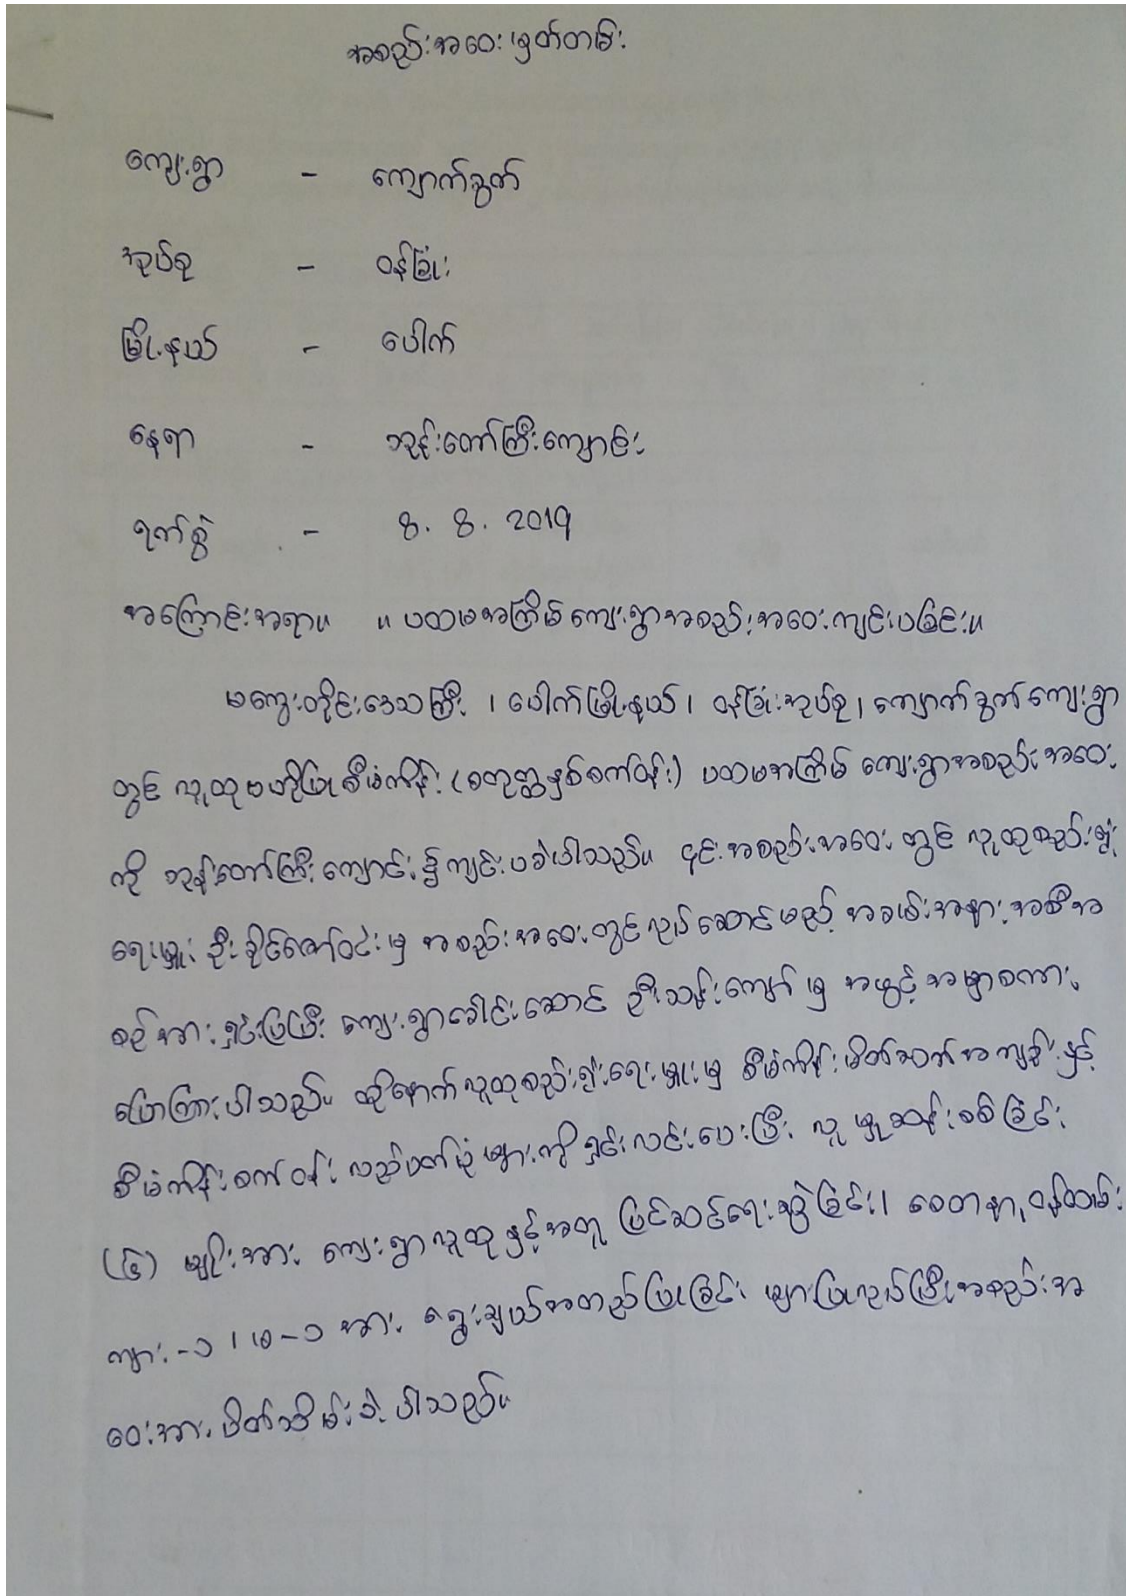 အစည်းအဝေး မှတ်တမ်း
ကျေးရွာ - ကျောက်ခွက်
အုပ်စု - ဝန်ခြုံး
မြို့နယ် - ပေါက်
နေရာ - ဘုန်းတော်ကြီးကျောင်း
ရက်စွဲ - 8. 8. 2019
အကြောင်းအရာ။ ။ ပထမအကြိမ် ကျေးရွာအစည်းအဝေးကျင်းပခြင်း။
မကွေးတိုင်းဒေသကြီး ၊ ပေါက်မြို့နယ် ၊ ဝန်ခြုံးအုပ်စု ၊ ကျောက်ခွက်ကျေးရွာ
တွင် လူထုဗဟိုပြုစီမံကိန်း (စတုတ္ထနှစ်စက်ဝန်း) ပထမအကြိမ် ကျေးရွာအစည်းအဝေး
ကို ဘုန်းတော်ကြီးကျောင်း၌ ကျင်းပခဲ့ပါသည်။ ၎င်းအစည်းအဝေးတွင် လူထုစည်းရုံး
ရေးမှူး ဦးခိုင်ဇော်ဝင်းမှ အစည်းအဝေးတွင် လုပ်ဆောင်မည့် အခမ်းအနားအစီအ
စဉ်အား ရှင်းပြပြီး ကျေးရွာခေါင်းဆောင် ဦးသန်းကျော် မှ အဖွင့်အမှာစကား
ပြောကြားပါသည်။ ထို့နောက် လူထုစည်းရုံးရေးမှူးမှ စီမံကိန်းမိတ်ဆက်အကျဉ်းနှင့်
စီမံကိန်းစက်ဝန်း လည်ပတ်ပုံများကို ရှင်းလင်းပေးပြီး လူမှုဆန်းစစ်ခြင်း
(၆) မျိုးအား ကျေးရွာလူထုနှင့်အတူ ပြင်ဆင်ရေးဆွဲခြင်း ၊ စေတနာ့ဝန်ထမ်း
ကျား-၁ ၊ မ-၁ အား ရွေးချယ်အတည်ပြုခြင်း များပြုလုပ်ပြီး အစည်းအ
ဝေးအား ပိတ်သိမ်းခဲ့ပါသည်။